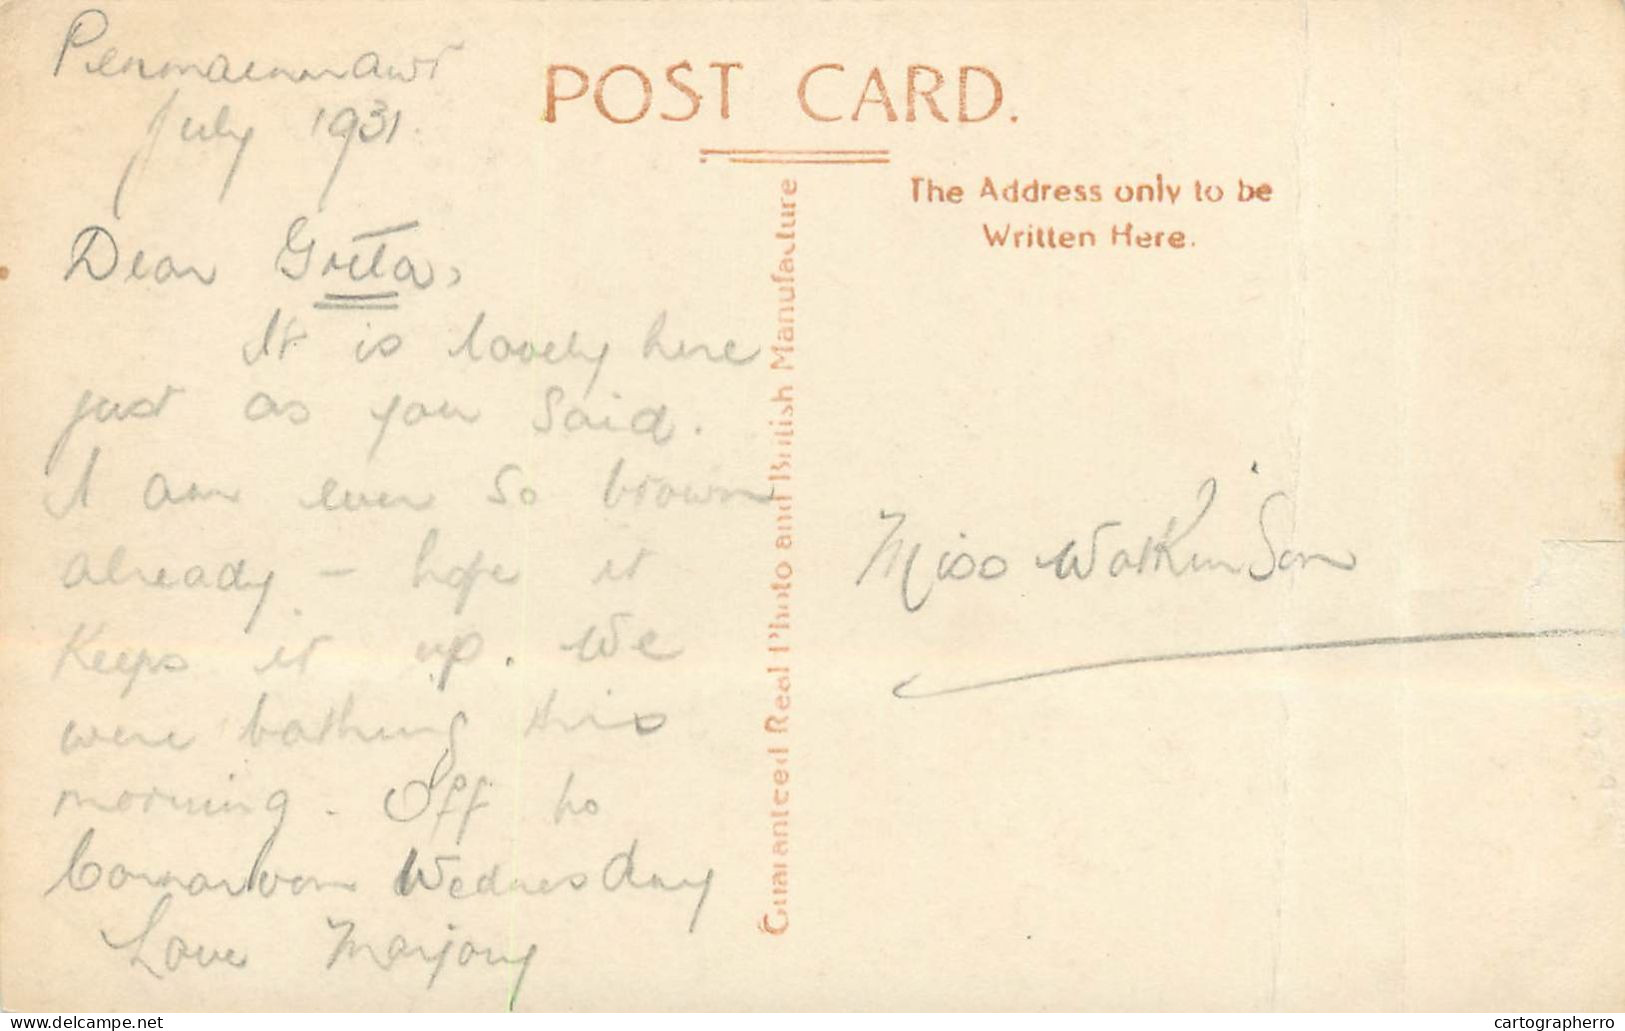 Penmaenmawr
July 1931.
POST CARD.
The Address only to be
Written Here.
Dear Greta,
It is lovely here
just as you said.
I am ever so brown
already - hope it
keeps it up. We
were bathing this
morning. Off to
Carnarvon Wednesday
Love Marjory
Guaranteed Real Photo and British Manufacture
Miss Watkinson
delcampe.net
cartographerro